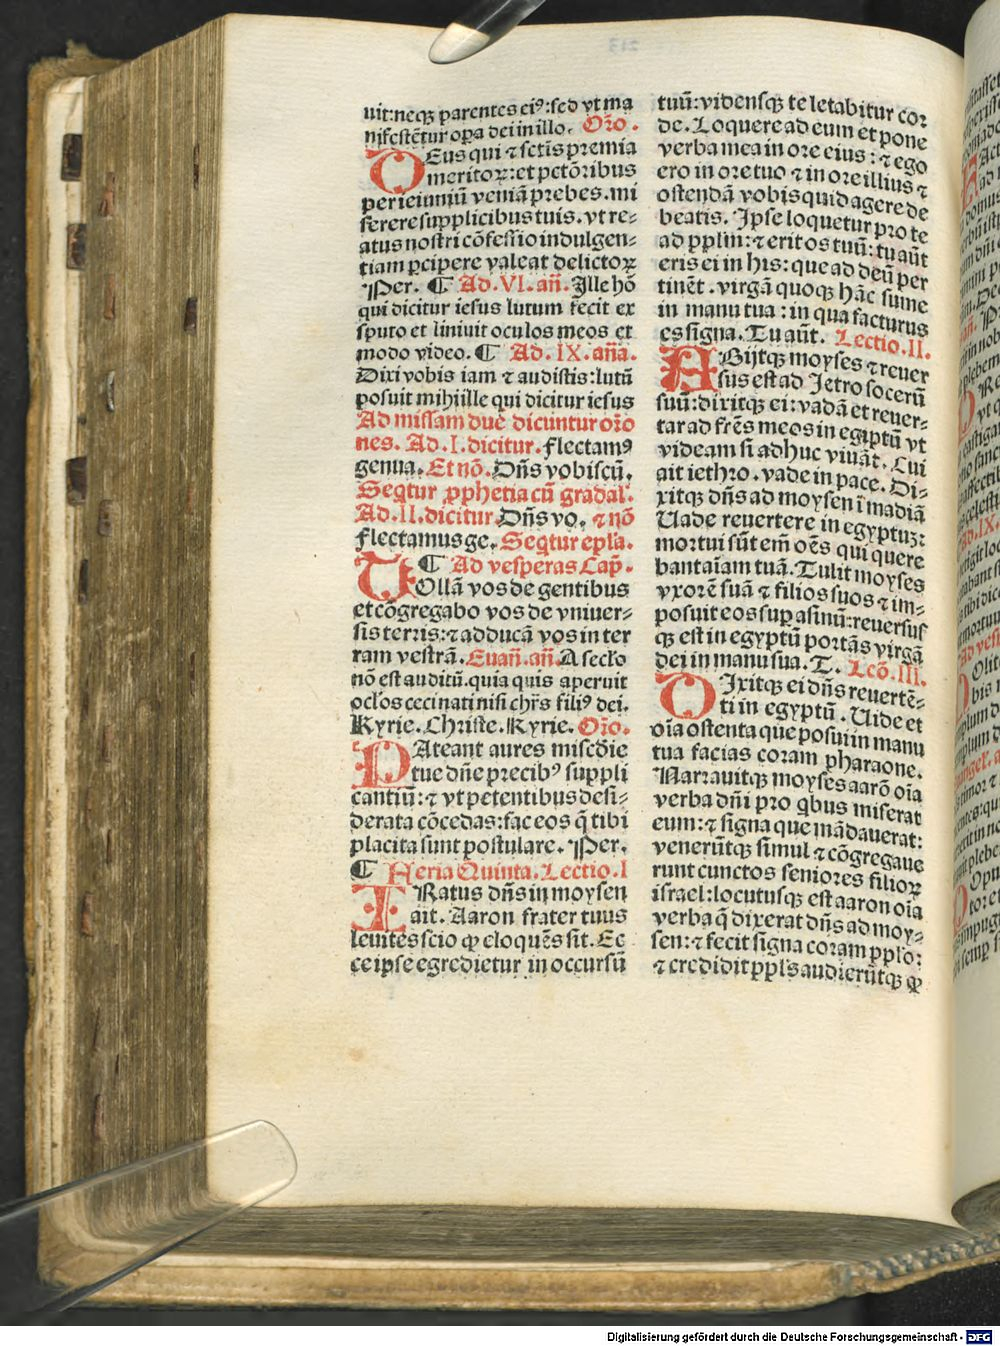 uit:neqꝫ parentes ei⁹:sed vt ma
nifestẽtur oꝑa dei in illo. Or̃o.
DEus qui ⁊ iustis premia
meritoꝝ:et pctõribus
per ieiuniũ veniã prebes. mi
serere supplicibus tuis. vt re⸗
atus nostri cõfessio indulgen⸗
tiam ꝑcipere valeat delictoꝝ
Per. ¶ Ad. VI. añ. Ille hõ
qui dicitur iesus lutum fecit ex
sputo et liniuit oculos meos et
modo video. ¶ Ad. IX. aña.
Dixi vobis iam ⁊ audistis:lutũ
posuit mihi ille qui dicitur iesus
Ad missam due dicuntur or̃o
nes. Ad. I. dicitur. Flectam⁹
genua. Et nõ. Dñs vobiscũ.
Seq̃tur ꝓphetia cũ gradal̃.
Ad. II. dicitur. Dñs vo. ⁊ nõ
Flectamus ge. Seq̃tur epl̃a.
¶ Ad vesperas Cap̃.
TOllã vos de gentibus
et cõgregabo vos de vniuer⸗
sis terris:⁊ adducã vos in ter
ram vestrã. Euañ. añ. A secl̃o
nõ est auditũ. quia quis aperuit
ocl̃os ceci nati nisi chr̃s fili⁹ dei.
Kyrie. Christe. Kyrie. Or̃o.
PAteant aures miscd̃ie
tue dñe precib⁹ suppli
cantiũ:⁊ vt petentibus desi⸗
derata cõcedas:fac eos q̃ tibi
placita sunt postulare. Per.
¶ Feria Quinta. Lectio. I
IRatus dñs in moysen
ait. Aaron frater tuus
leuites scio ꝙ eloquẽs sit. Ec
ce ipse egredietur in occursũ
tuũ:vidensqꝫ te letabitur cor
de. Loquere ad eum et pone
verba mea in ore eius:⁊ ego
ero in ore tuo ⁊ in ore illius ⁊
ostendã vobis quid agere de
beatis. Ipse loquetur pro te
ad ppl̃m:⁊ erit os tuũ:tu aũt
eris ei in his:que ad deũ per
tinẽt. virgã quoqꝫ hãc sume
in manu tua:in qua facturus
es signa. Tu aũt. Lectio. II.
ABijtqꝫ moyses ⁊ reuer
sus est ad Jetro socerũ
suũ:dixitqꝫ ei:vadã et reuer⸗
tar ad fr̃es meos in egiptũ vt
videam si adhuc viuãt. Cui
ait iethro. vade in pace. Di⸗
xitqꝫ dñs ad moysen ĩ madiã
Vade reuertere in egyptuꝫ:
mortui sũt em̃ oẽs qui quere
bant aĩam tuã. Tulit moyses
vxorẽ suã ⁊ filios suos ⁊ im⸗
posuit eos suꝑ asinũ:reuersus
qꝫ est in egyptũ portãs virgã
dei in manu sua. T. Lcõ. III.
DIxitqꝫ ei dñs reuertẽ⸗
ti in egyptũ. Uide et
oĩa ostenta que posui in manu
tua facias coram pharaone.
Narrauitqꝫ moyses aarõ oĩa
verba dñi pro q̃bus miserat
eum:⁊ signa que mãdauerat:
venerũtqꝫ simul ⁊ cõgregaue
runt cunctos seniores filioꝝ
israel:locutusqꝫ est aaron oĩa
verba q̃ dixerat dñs ad moy⸗
sen:⁊ fecit signa coram ppl̃o:
⁊ credidit ppl̃s audierũtqꝫ ꝙ
Digitalisierung gefördert durch die Deutsche Forschungsgemeinschaft - DFG